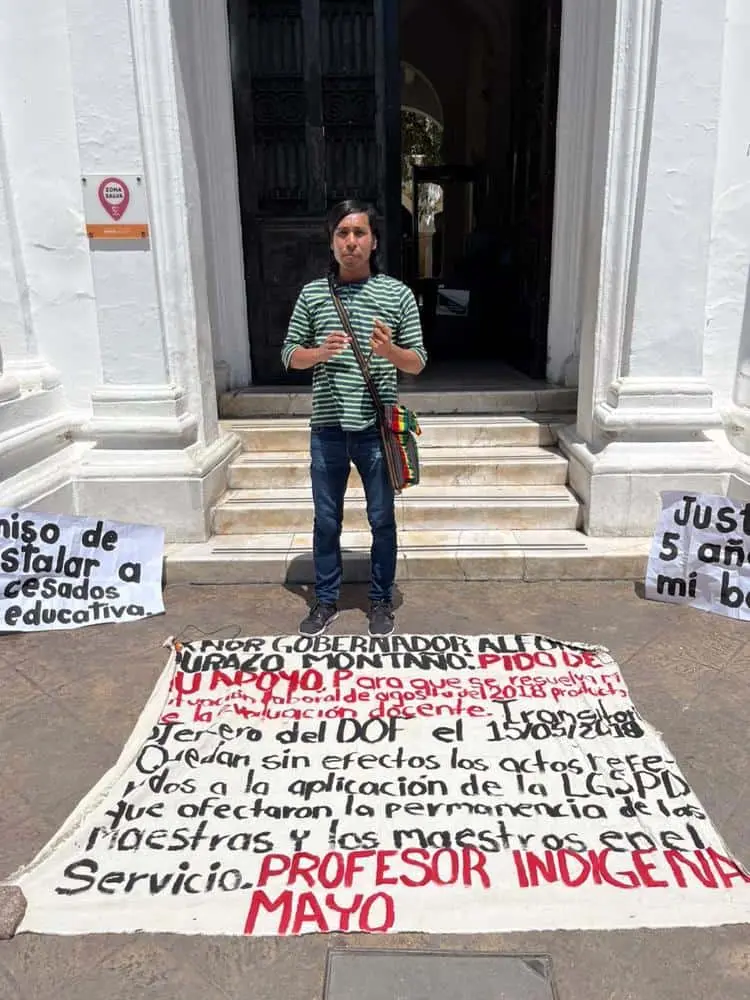 ZONA
SALVA
niso de
stalar a
cesados
educativa.
Just
5 añ
mi b
ÑOR GOBERNADOR ALFO
URAZO MONTAÑO. PIDO DE
U APOYO. Para que se resuelva m
tuación laboral de agosto del 2018 product
e la Evaluación docente. Transitor
Tercero del DOF el
Quedan sin efectos los actos refe-
idos a la aplicación de la LGSPD
que afectaron la permanencia de las
Maestras y los maestros en el
Servicio. PROFESOR INDIGENA
MAYO